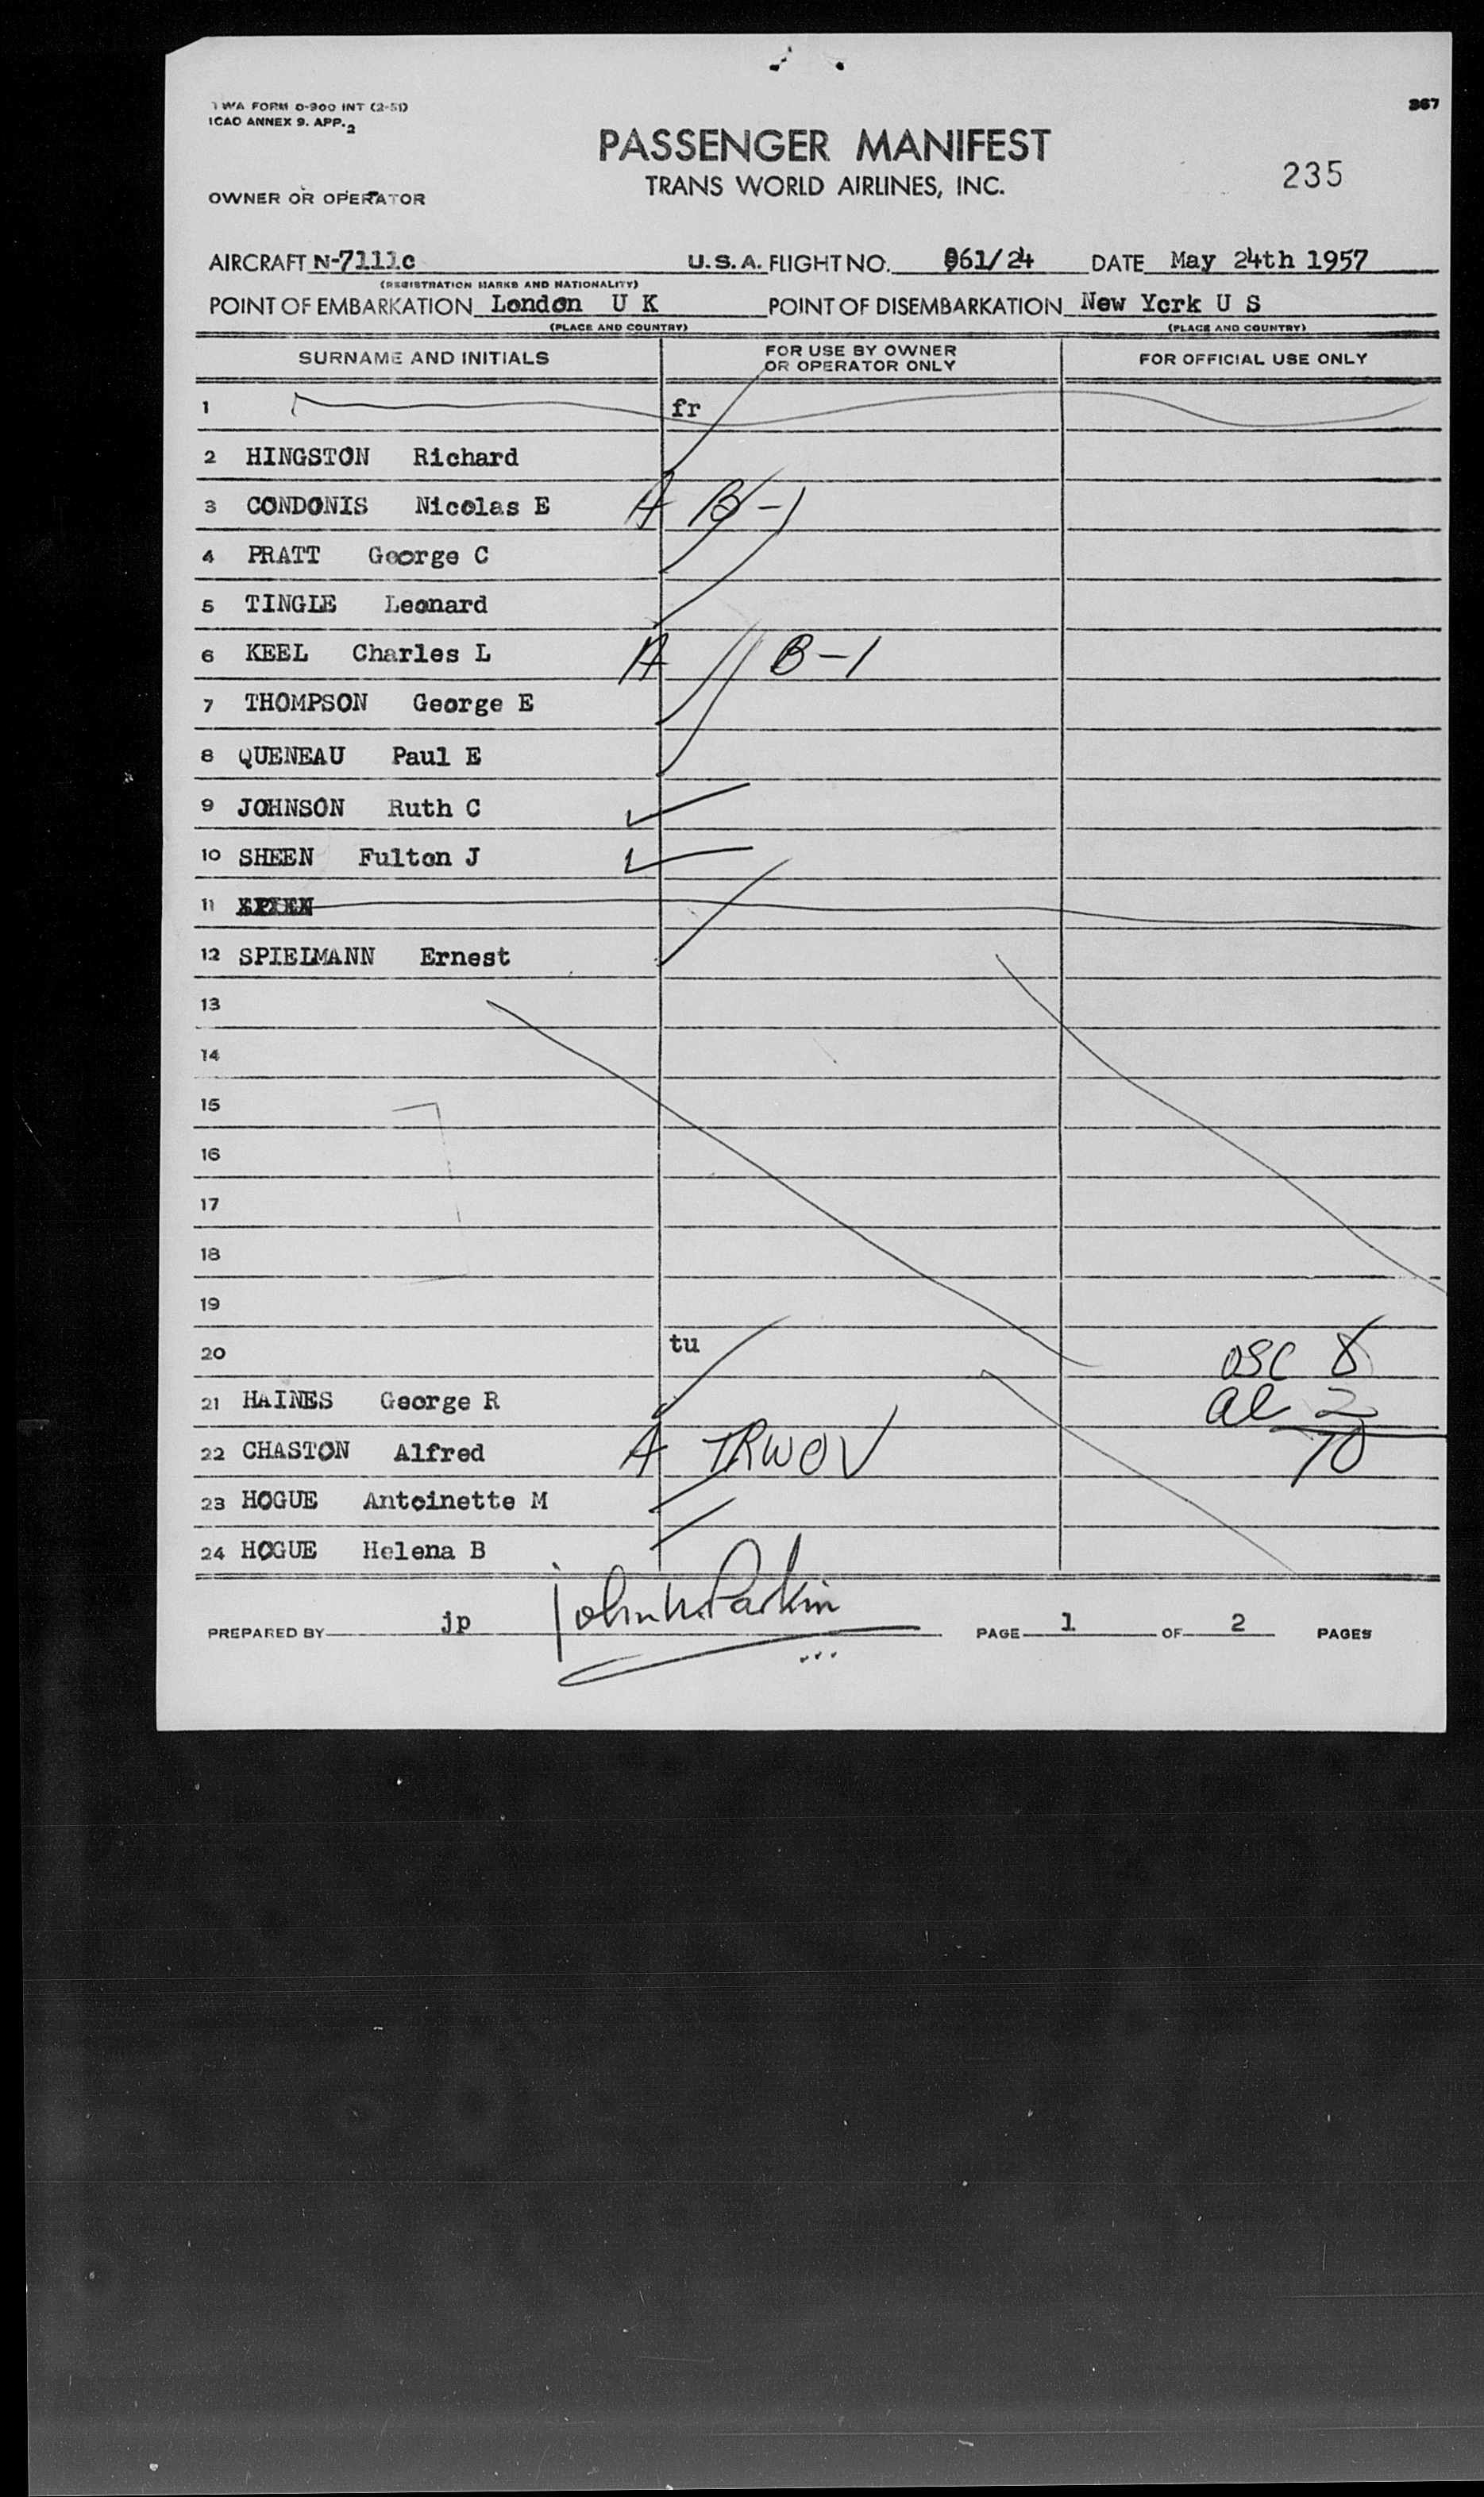 TWA FORM O-900 INT (2-51)
ICAO ANNEX 9. APP. 2
367
PASSENGER MANIFEST
TRANS WORLD AIRLINES, INC.
235
OWNER OR OPERATOR
AIRCRAFT N-7111c U.S.A. FLIGHT NO. 961/24 DATE May 24th 1957
(REGISTRATION MARKS AND NATIONALITY)
POINT OF EMBARKATION London U K POINT OF DISEMBARKATION New York U S
(PLACE AND COUNTRY) (PLACE AND COUNTRY)
SURNAME AND INITIALS FOR USE BY OWNER OR OPERATOR ONLY FOR OFFICIAL USE ONLY
1 fr
2 HINGSTON Richard
3 CONDONIS Nicolas E A B-1
4 PRATT George C
5 TINGLE Leonard
6 KEEL Charles L A B-1
7 THOMPSON George E
8 QUENEAU Paul E
9 JOHNSON Ruth C
10 SHEEN Fulton J
11
12 SPIELMANN Ernest
13
14
15
16
17
18
19
20 tu OSC 8
21 HAINES George R al 2
22 CHASTON Alfred A TRWOV 10
23 HOGUE Antoinette M
24 HOGUE Helena B
PREPARED BY jp John W. Parkin PAGE 1 OF 2 PAGES